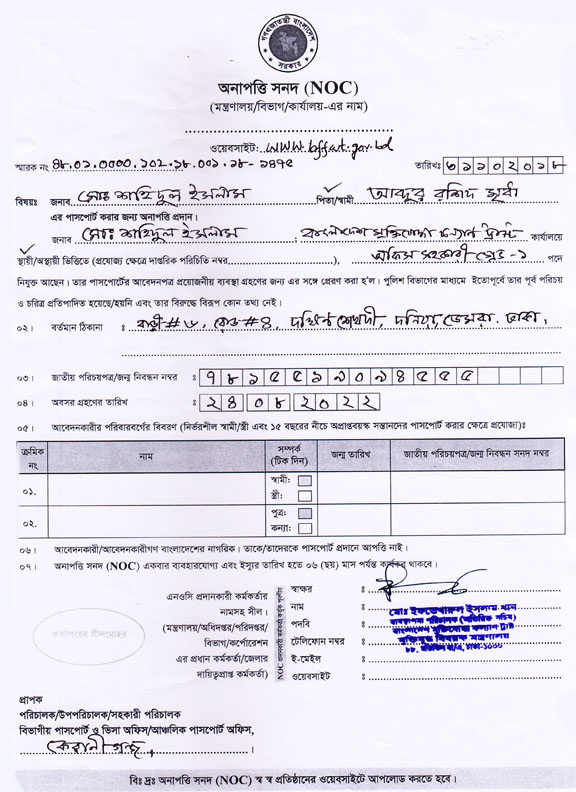 গণপ্রজাতন্ত্রী বাংলাদেশ
সরকার
অনাপত্তি সনদ (NOC)
(মন্ত্রণালয়/বিভাগ/কার্যালয়-এর নাম)
ওয়েবসাইট: www.bffwt.gov.bd
স্মারক নং ৪৮.০১.০০০০.১০২.১৮.০০১.১৮-১৪৭৫ তারিখঃ ০১১০২০১৮
বিষয়ঃ জনাব মোঃ শহিদুল ইসলাম পিতা/স্বামী আব্দুর রশিদ মৃধা
এর পাসপোর্ট করার জন্য অনাপত্তি প্রদান।
জনাব মোঃ শহিদুল ইসলাম, বাংলাদেশ মুক্তিযোদ্ধা কল্যাণ ট্রাস্ট কার্যালয়ে
স্থায়ী/অস্থায়ী ভিত্তিতে (প্রযোজ্য ক্ষেত্রে দাপ্তরিক পরিচিতি নম্বর), অফিস সহকারী গ্রেড-১ পদে
নিযুক্ত আছেন। তার পাসপোর্টের আবেদনপত্র প্রয়োজনীয় ব্যবস্থা গ্রহণের জন্য এর সঙ্গে প্রেরণ করা হ'ল। পুলিশ বিভাগের মাধ্যমে ইতোপূর্বে তার পূর্ব পরিচয়
ও চরিত্র প্রতিপাদিত হয়েছে/হয়নি এবং তার বিরুদ্ধে বিরূপ কোন তথ্য নেই।
০২। বর্তমান ঠিকানা ঃ বাড়ী # ৬, রোড # ৪, দক্ষিণ শেখদী, দনিয়া, ডেমরা, ঢাকা,
০৩। জাতীয় পরিচয়পত্র/জন্ম নিবন্ধন নম্বর ঃ ৭৮১৫৫১৯০৯৪৫৫৫
০৪। অবসর গ্রহণের তারিখ ঃ ২৪০৮২০২২
০৫। আবেদনকারীর পরিবারবর্গের বিবরণ (নির্ভরশীল স্বামী/স্ত্রী এবং ১৫ বছরের নীচে অপ্রাপ্তবয়স্ক সন্তানদের পাসপোর্ট করার ক্ষেত্রে প্রযোজ্য)ঃ
ক্রমিক নং নাম সম্পর্ক (টিক দিন) জন্ম তারিখ জাতীয় পরিচয়পত্র/জন্ম নিবন্ধন সনদ নম্বর
০১. স্বামী:
স্ত্রী:
০২. পুত্র:
কন্যা:
০৬। আবেদনকারী/আবেদনকারীগণ বাংলাদেশের নাগরিক। তাকে/তাদেরকে পাসপোর্ট প্রদানে আপত্তি নাই।
০৭। অনাপত্তি সনদ (NOC) একবার ব্যবহারযোগ্য এবং ইস্যুর তারিখ হতে ০৬ (ছয়) মাস পর্যন্ত কার্যকর থাকবে।
কার্যালয়ের সীলমোহর
এনওসি প্রদানকারী কর্মকর্তার
নামসহ সীল।
(মন্ত্রণালয়/অধিদপ্তর/পরিদপ্তর/
বিভাগ/কর্পোরেশন
এর প্রধান কর্মকর্তা/জেলার
দায়িত্বপ্রাপ্ত কর্মকর্তা)
স্বাক্ষর ঃ
নাম ঃ মোঃ ইফতেখারুল ইসলাম খান
পদবি ঃ ব্যবস্থাপনা পরিচালক (অতিরিক্ত সচিব)
বাংলাদেশ মুক্তিযোদ্ধা কল্যাণ ট্রাস্ট
টেলিফোন নম্বর ঃ মুক্তিযুদ্ধ বিষয়ক মন্ত্রণালয়
৮৮, মতিঝিল বা/এ, ঢাকা-১০০০
ই-মেইল ঃ
ওয়েবসাইট ঃ
প্রাপক
পরিচালক/উপপরিচালক/সহকারী পরিচালক
বিভাগীয় পাসপোর্ট ও ভিসা অফিস/আঞ্চলিক পাসপোর্ট অফিস,
কেরানীগঞ্জ,
বিঃ দ্রঃ অনাপত্তি সনদ (NOC) স্ব স্ব প্রতিষ্ঠানের ওয়েবসাইটে আপলোড করতে হবে।